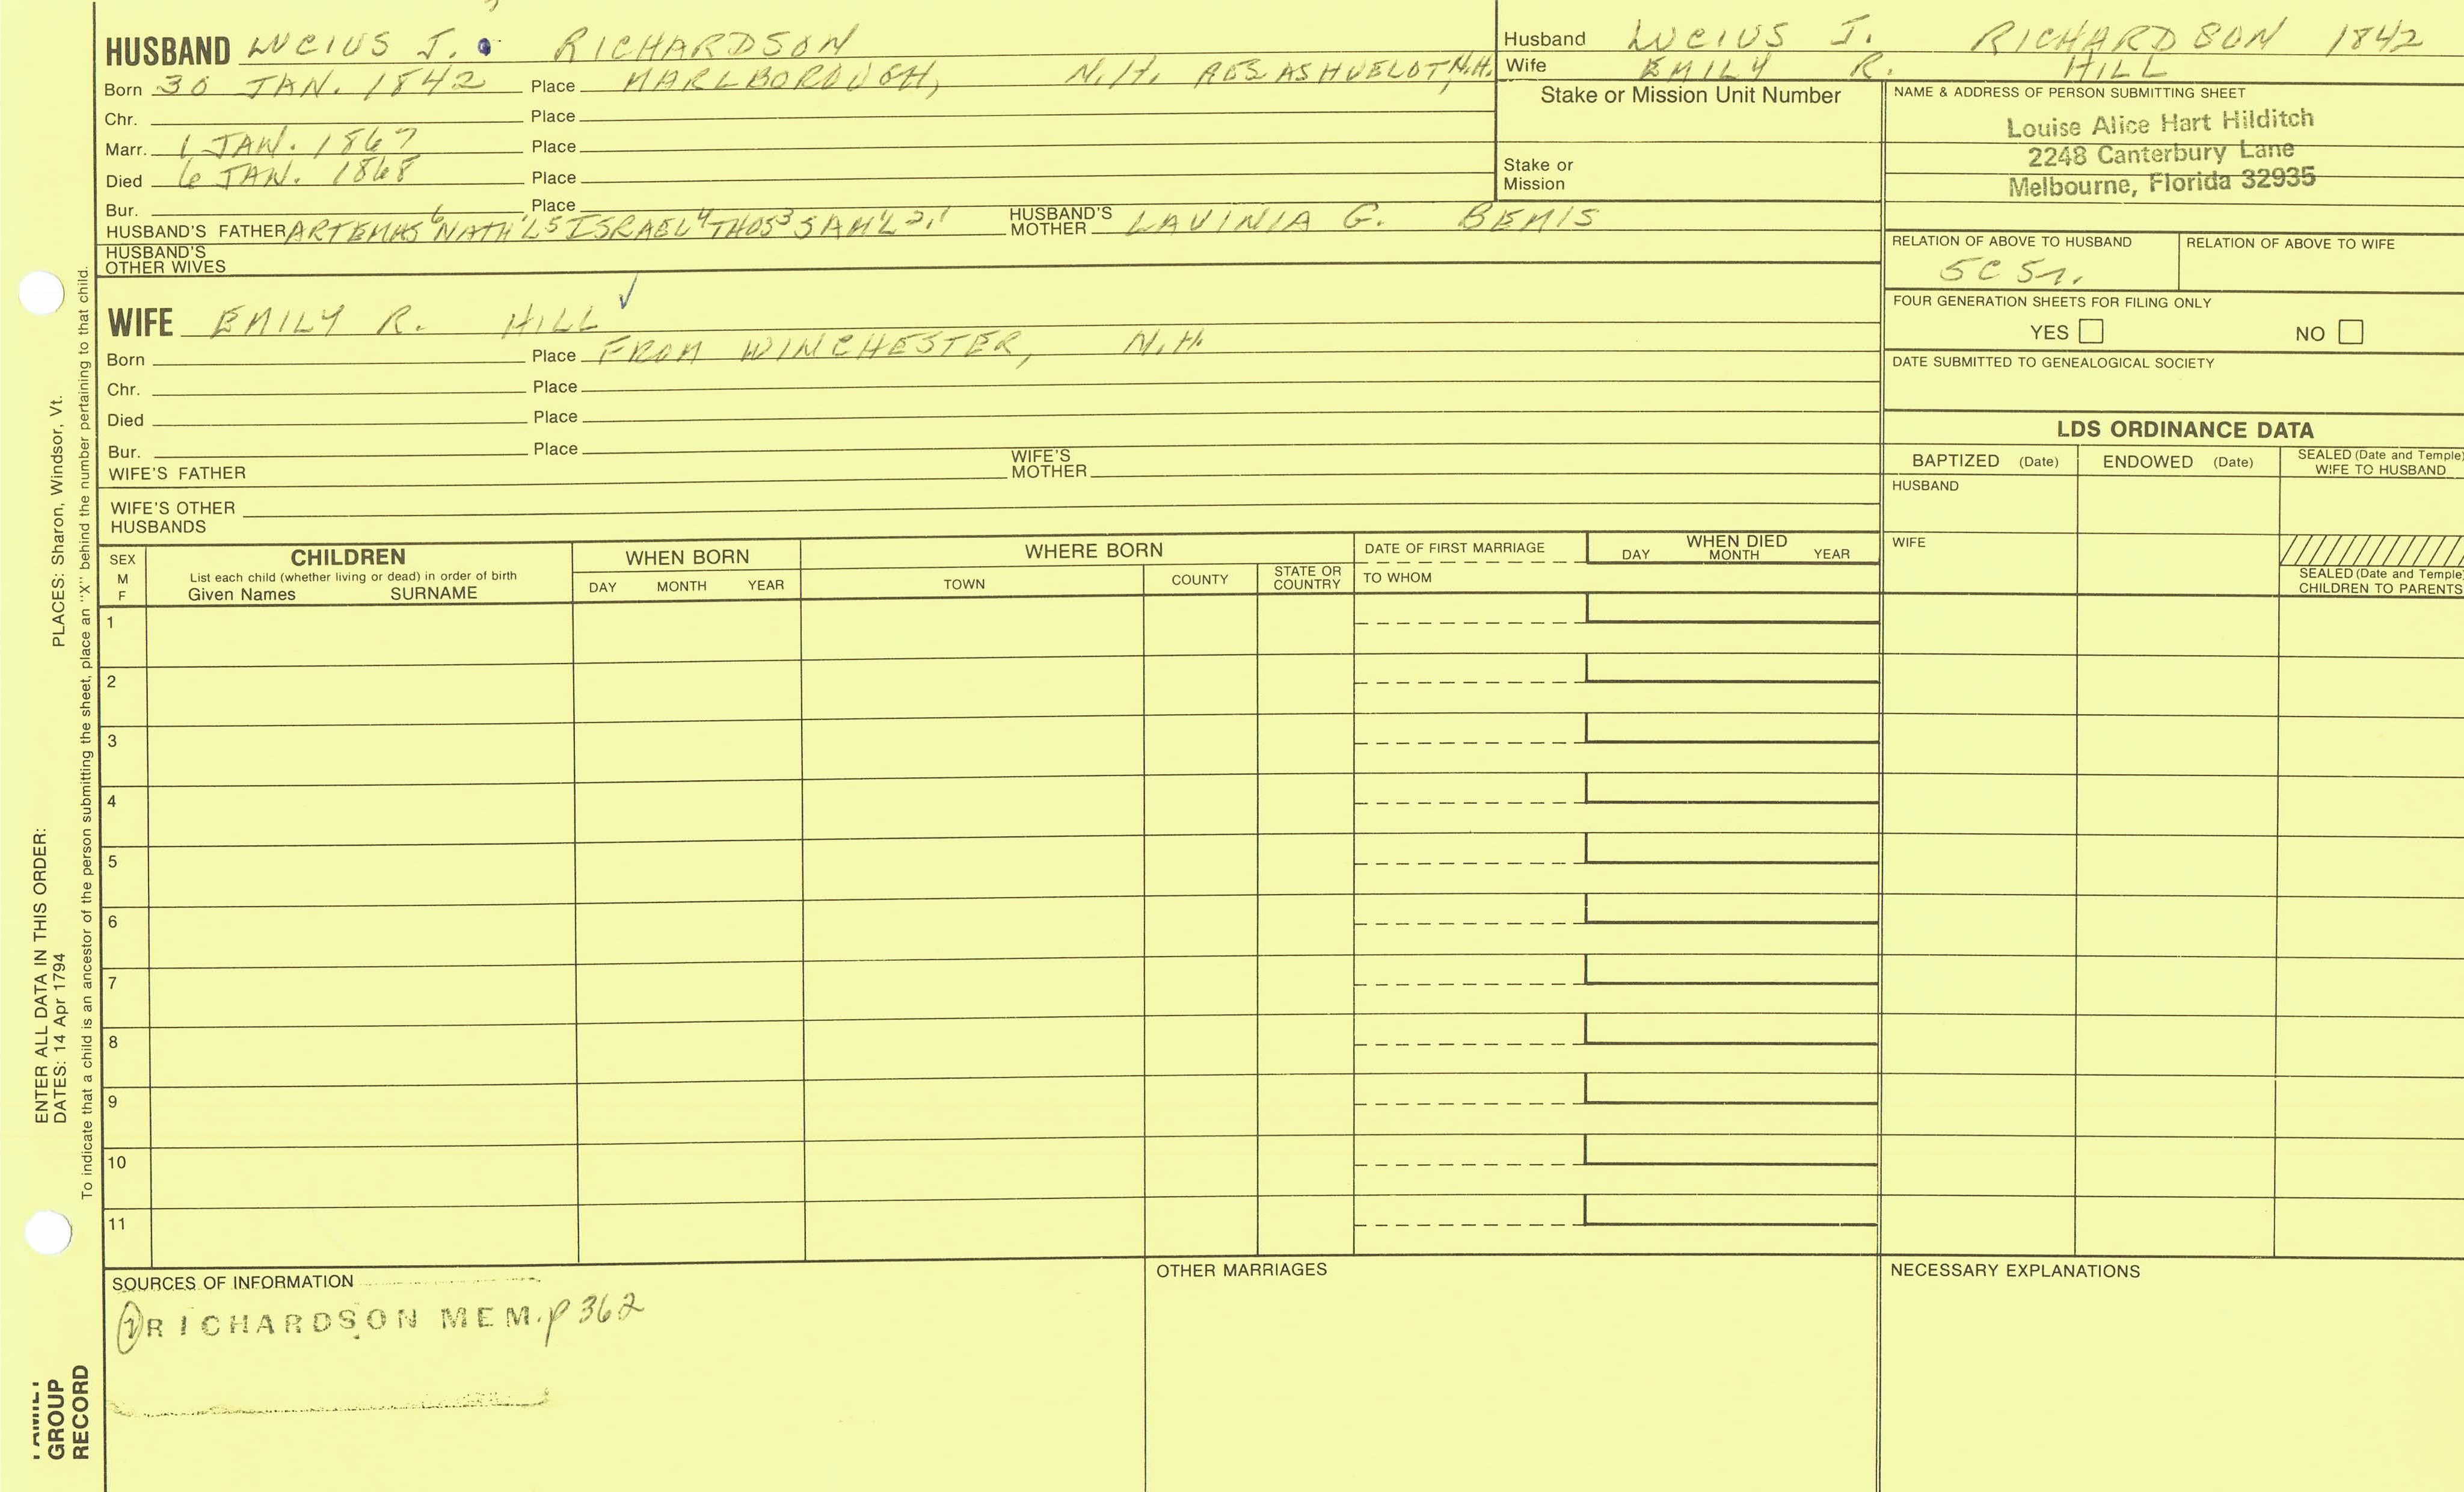 HUSBAND LUCIUS J. RICHARDSON
Born 30 JAN. 1842 Place MARLBOROUGH, N.H. RES ASHUELOT, N.H.
Chr. Place
Marr. 1 JAN. 1867 Place
Died 6 JAN. 1868 Place
Bur. Place
HUSBAND'S FATHER ARTEMAS⁶ NATH'L⁵ ISRAEL⁴ THOS³ SAM'L²,¹ HUSBAND'S MOTHER LAVINIA G. BEMIS
HUSBAND'S OTHER WIVES
WIFE EMILY R. HILL ✓
Born Place FROM WINCHESTER, N.H.
Chr. Place
Died Place
Bur. Place
WIFE'S FATHER WIFE'S MOTHER
WIFE'S OTHER HUSBANDS
Husband LUCIUS J. RICHARDSON 1842
Wife EMILY R. HILL
Stake or Mission Unit Number
Stake or
Mission
NAME & ADDRESS OF PERSON SUBMITTING SHEET
Louise Alice Hart Hilditch
2248 Canterbury Lane
Melbourne, Florida 32935
RELATION OF ABOVE TO HUSBAND RELATION OF ABOVE TO WIFE
5C 5r.
FOUR GENERATION SHEETS FOR FILING ONLY
YES NO
DATE SUBMITTED TO GENEALOGICAL SOCIETY
LDS ORDINANCE DATA
BAPTIZED (Date) ENDOWED (Date) SEALED (Date and Temple) WIFE TO HUSBAND
HUSBAND
WIFE
SEALED (Date and Temple)
CHILDREN TO PARENTS
SEX
M
F
CHILDREN
List each child (whether living or dead) in order of birth
Given Names SURNAME
WHEN BORN
DAY MONTH YEAR
WHERE BORN
TOWN COUNTY STATE OR COUNTRY
DATE OF FIRST MARRIAGE
TO WHOM
WHEN DIED
DAY MONTH YEAR
1
2
3
4
5
6
7
8
9
10
11
SOURCES OF INFORMATION
① RICHARDSON MEM. p 362
OTHER MARRIAGES
NECESSARY EXPLANATIONS
PLACES: Sharon, Windsor, Vt.
To indicate that a child is an ancestor of the person submitting the sheet, place an "X" behind the number pertaining to that child.
ENTER ALL DATA IN THIS ORDER:
DATES: 14 Apr 1794
FAMILY
GROUP
RECORD